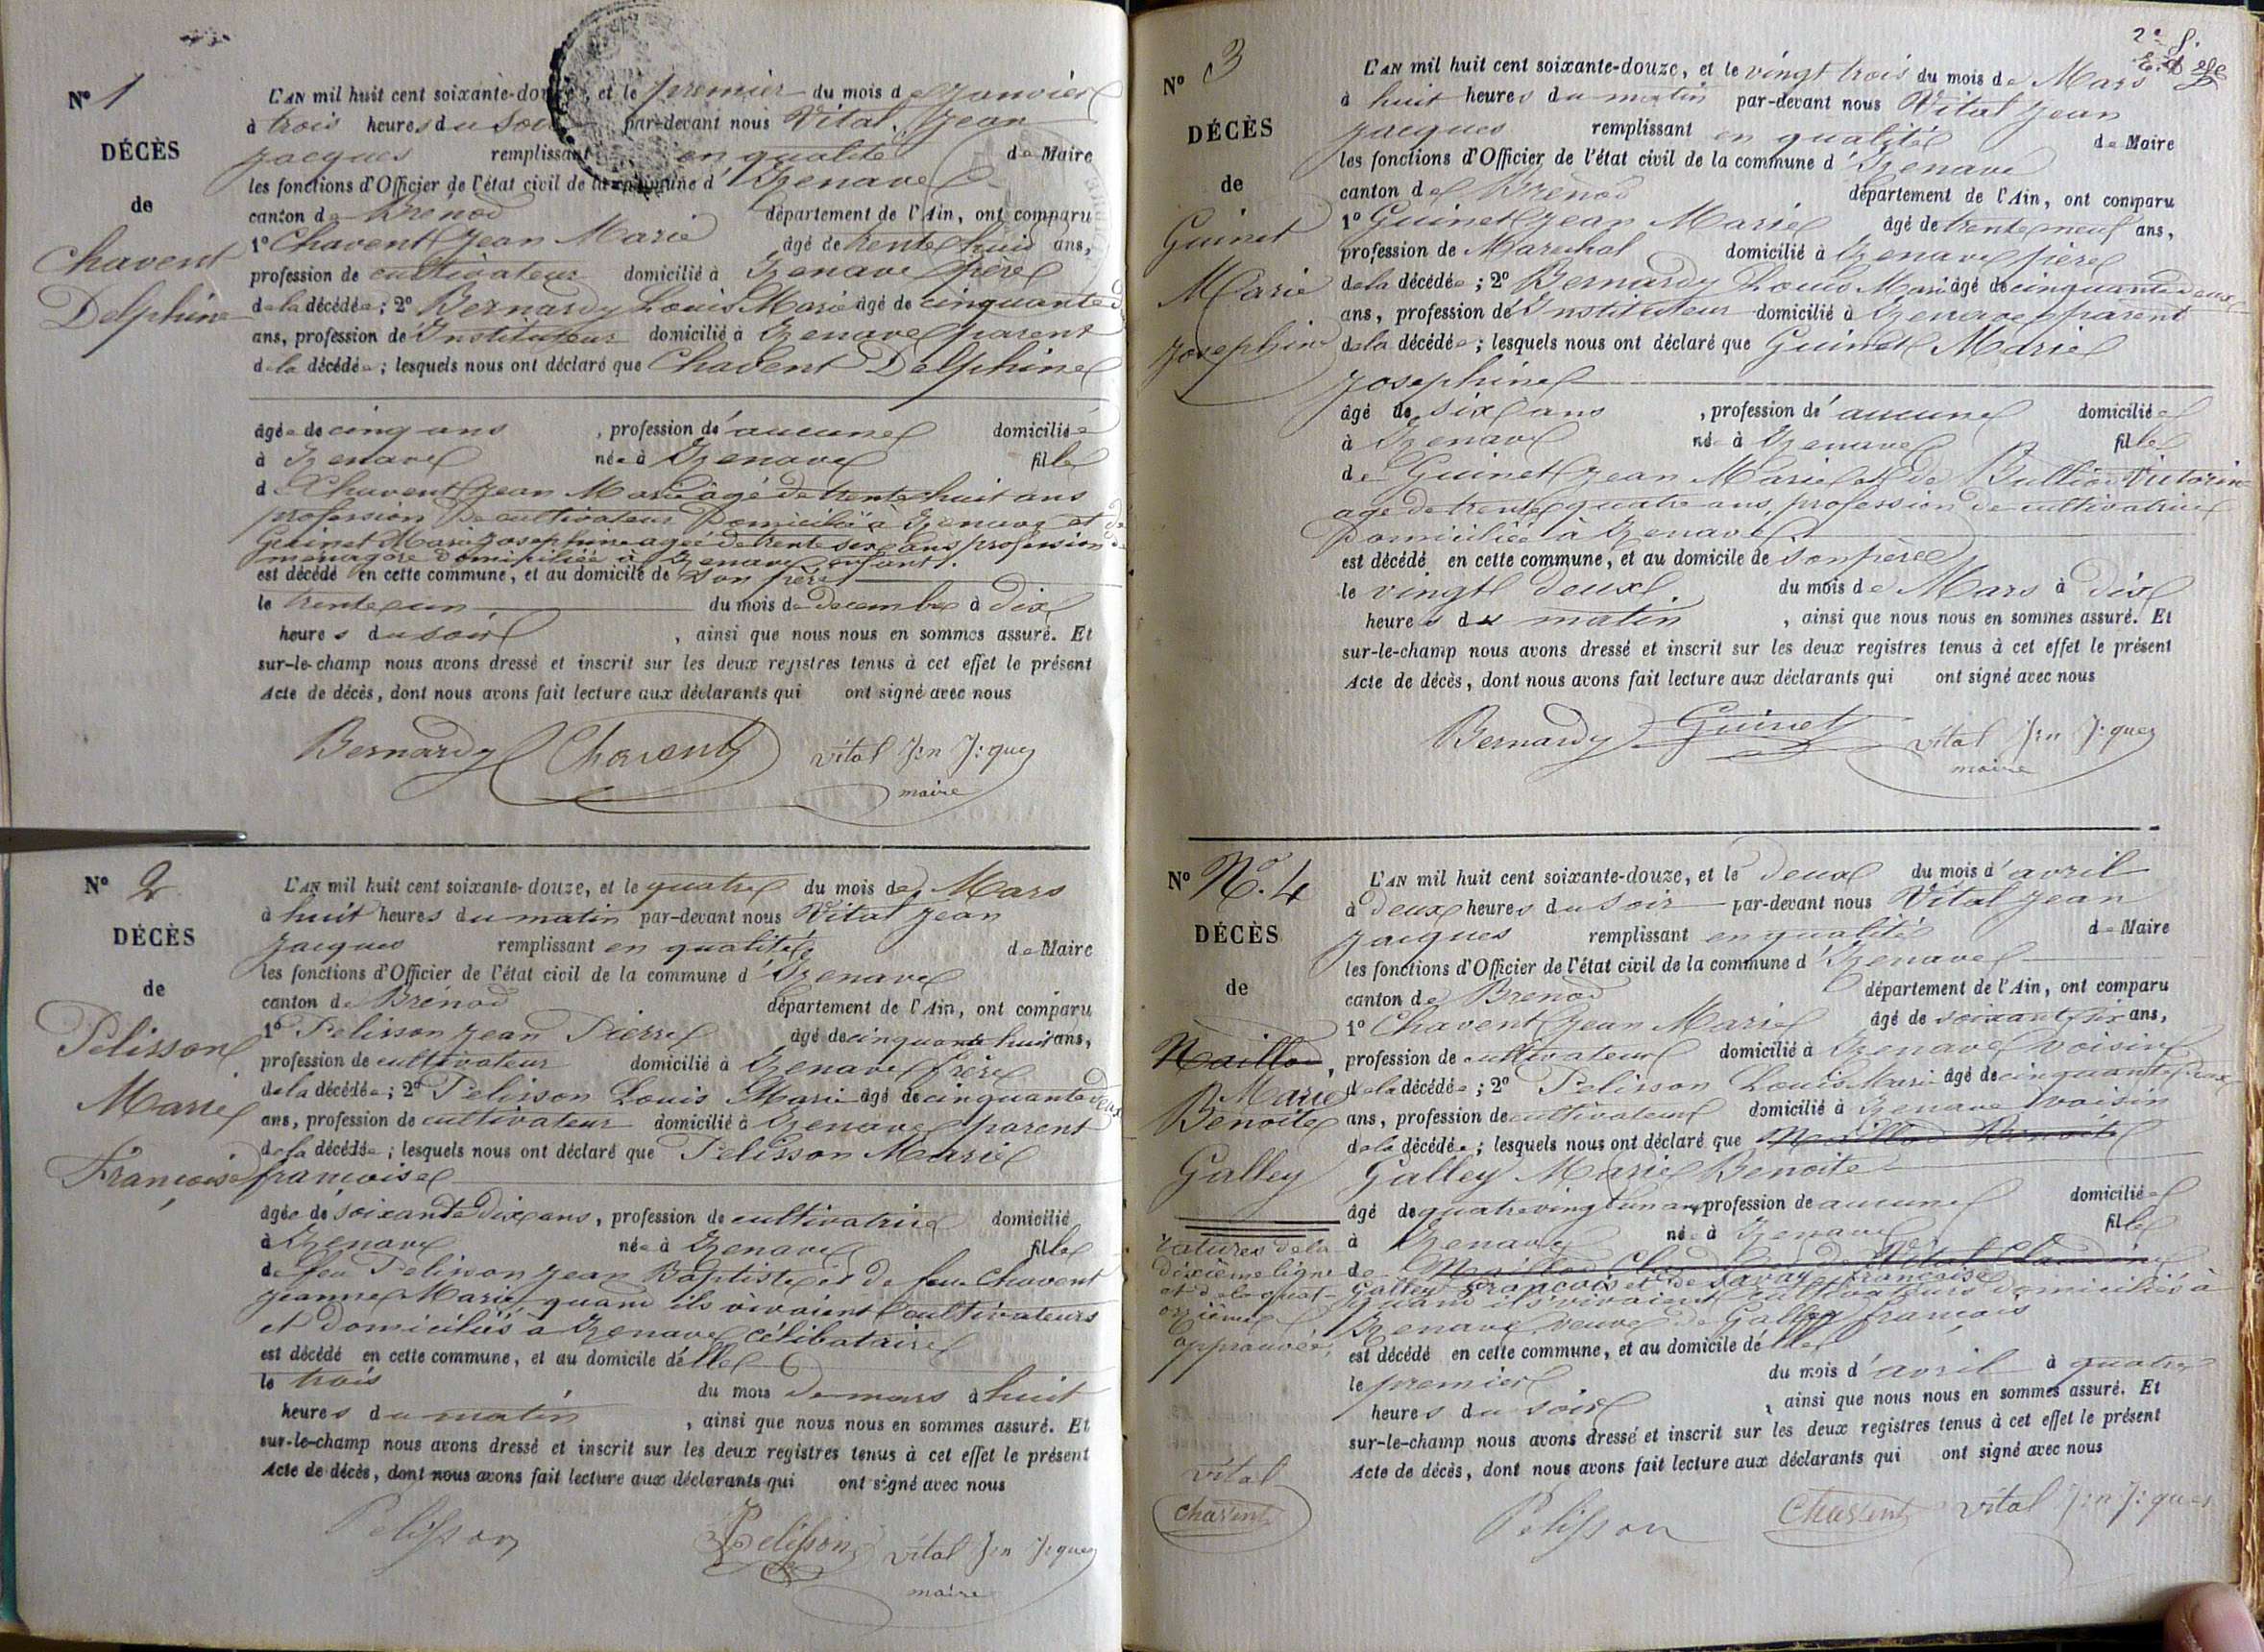 N° 1
DÉCÈS
de
Chavent
Delphine
L'AN mil huit cent soixante-douze, et le premier du mois de Janvier
à trois heures du Soir par-devant nous Vital Jean
Jacques remplissant en qualité de Maire
les fonctions d'Officier de l'état civil de la commune d'Izenave
canton de Brénod département de l'Ain, ont comparu
1° Chavent Jean Marie âgé de trente huit ans,
profession de cultivateur domicilié à Izenave père
de la décédée; 2° Bernardy Louis Marie âgé de cinquante
ans, profession d'Instituteur domicilié à Izenave parent
de la décédée; lesquels nous ont déclaré que Chavent Delphine
âgée de cinq ans, profession d'aucune domiciliée
à Izenave née à Izenave fille
de Chavent Jean Marie âgé de trente huit ans
profession de cultivateur domicilié à Izenave et de
Guinet Marie Josephine agée de trente six ans profession de
menagère domiciliée à Izenave enfant.
est décédé en cette commune, et au domicile de son père
le trente un du mois de decembre à dix
heures du soir, ainsi que nous nous en sommes assuré. Et
sur-le-champ nous avons dressé et inscrit sur les deux registres tenus à cet effet le présent
Acte de décès, dont nous avons fait lecture aux déclarants qui ont signé avec nous
Bernardy Chavent Vital Jn J:ques
maire
N° 2
DÉCÈS
de
Pelisson
Marie
Françoise
L'AN mil huit cent soixante-douze, et le quatre du mois de Mars
à huit heures du matin par-devant nous Vital Jean
Jacques remplissant en qualité de Maire
les fonctions d'Officier de l'état civil de la commune d'Izenave
canton de Brénod département de l'Ain, ont comparu
1° Pelisson Jean Pierre âgé de cinquante huit ans,
profession de cultivateur domicilié à Izenave frère
de la décédée; 2° Pelisson Louis Marie âgé de cinquante deux
ans, profession de cultivateur domicilié à Izenave parent
de la décédée; lesquels nous ont déclaré que Pelisson Marie
françoise
âgée de soixante dix ans, profession de cultivatrice domicilié
à Izenave née à Izenave fille
de feu Pelisson Jean Baptiste et de feue Chavent
Jeanne Marie, quand ils vivaient cultivateurs
et domiciliés à Izenave célibataire
est décédé en cette commune, et au domicile d'elle
le trois du mois de mars à huit
heures du matin, ainsi que nous nous en sommes assuré. Et
sur-le-champ nous avons dressé et inscrit sur les deux registres tenus à cet effet le présent
Acte de décès, dont nous avons fait lecture aux déclarants qui ont signé avec nous
Pelisson Pelisson Vital Jn J:ques
maire
N° 3
DÉCÈS
de
Guinet
Marie
Josephine
L'AN mil huit cent soixante-douze, et le vingt trois du mois de Mars
à huit heures du matin par-devant nous Vital Jean
Jacques remplissant en qualité de Maire
les fonctions d'Officier de l'état civil de la commune d'Izenave
canton de Brenod département de l'Ain, ont comparu
1° Guinet Jean Marie âgé de trente neuf ans,
profession de Marechal domicilié à Izenave père
de la décédée; 2° Bernardy Louis Marie âgé de cinquante deux
ans, profession d'Instituteur domicilié à Izenave parent
de la décédée; lesquels nous ont déclaré que Guinet Marie
Josephine
âgé de six ans, profession d'aucune domiciliée
à Izenave née à Izenave fille
de Guinet Jean Marie et de Bullion Victorine
age de trente quatre ans, profession de cultivatrice
Domiciliée à Izenave
est décédé en cette commune, et au domicile de son père
le vingt deux. du mois de Mars à Dix
heures du matin, ainsi que nous nous en sommes assuré. Et
sur-le-champ nous avons dressé et inscrit sur les deux registres tenus à cet effet le présent
Acte de décès, dont nous avons fait lecture aux déclarants qui ont signé avec nous
Bernardy Guinet Vital Jn J:ques
maire
N° N°. 4
DÉCÈS
de
Maillod,
Marie
Benoite
Galley
ratures de la
dixième ligne
et de la quat-
orzième
approuvées,
Vital
Chavent
L'AN mil huit cent soixante-douze, et le deux du mois d'avril
à deux heures du soir par-devant nous Vital Jean
Jacques remplissant en qualité de Maire
les fonctions d'Officier de l'état civil de la commune d'Izenave
canton de Brenod département de l'Ain, ont comparu
1° Chavent Jean Marie âgé de soixante six ans,
profession de cultivateur domicilié à Izenave voisin
de la décédée; 2° Pelisson Louis Marie âgé de cinquante deux
ans, profession de cultivateur domicilié à Izenave voisin
de la décédée; lesquels nous ont déclaré que Maillod Benoite
Galley Marie Benoite
âgé de quatre vingt un ans profession de aucune domiciliée
à Izenave née à Izenave fille
de Maillod Claude et de Vital Claudine
Galley François et de Savay françoise
quand ils vivaient cultivateurs domiciliés à
Izenave veuve de Galley françois
est décédé en cette commune, et au domicile d'elle
le premier du mois d'avril à quatre
heures du soir, ainsi que nous nous en sommes assuré. Et
sur-le-champ nous avons dressé et inscrit sur les deux registres tenus à cet effet le présent
Acte de décès, dont nous avons fait lecture aux déclarants qui ont signé avec nous
Pelisson Chavent Vital Jn J:ques